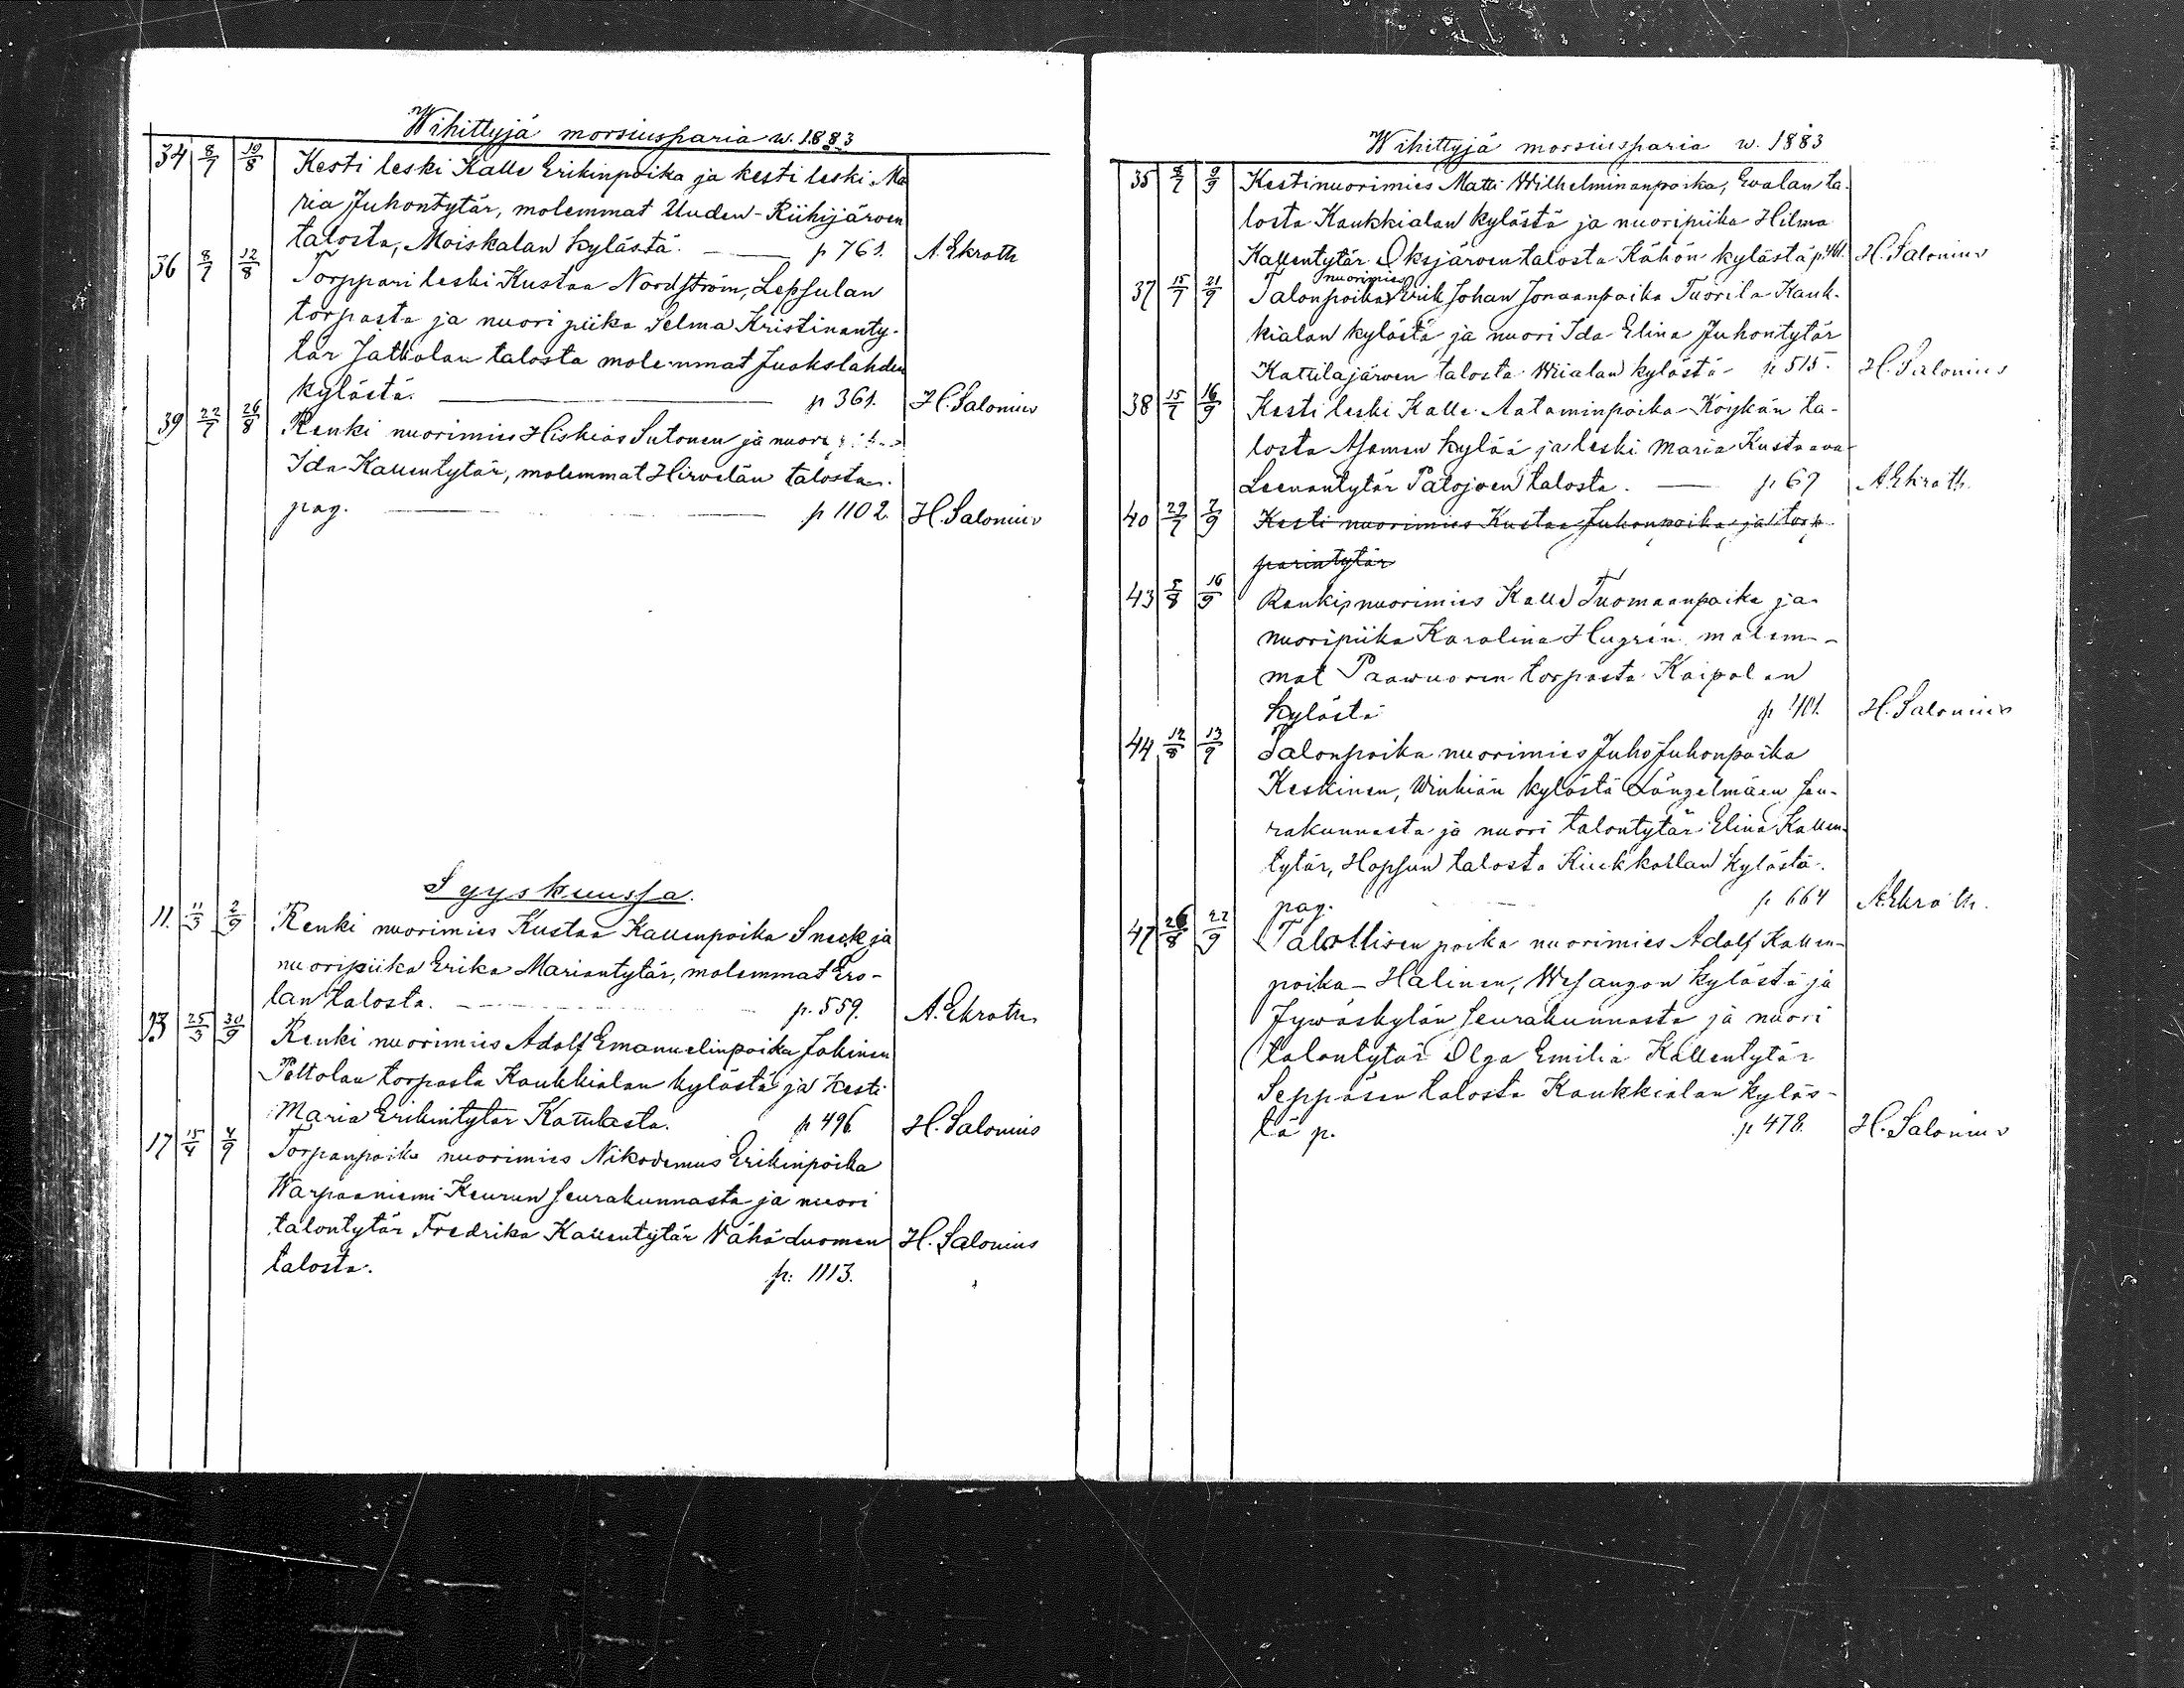 Wihittyjä morsiusparia w. 1883
34 8/7 19/8 Kesti leski Kalle Erikinpoika ja kesti leski Ma
ria Juhontytär, molemmat Uuden-Riihijärven
talosta, Moiskalan kylästä. p 761. A. Ekroth
36 8/7 12/8 Torppari leski Kustaa Nordström, Lepsulan
torpasta ja nuori piika Selma Kristinanty-
tär Jatkolan talosta molemmat Juokslahden
kylästä. p 361. H. Salonius
39 22/7 26/8 Renki nuorimies Hiskias Sutonen ja nuori
Ida Kallentytär, molemmat Hirvelän talosta.
pag. p 1102. H. Salonius
Syyskuussa.
11. 11/3 2/9 Renki nuorimies Kustaa Kallenpoika Sneck ja
nuoripiika Erika Mariantytär, molemmat Ero-
lan talosta. p. 559. A. Ekroth
13 25/3 30/9 Renki nuorimies Adolf Emanuelinpoika Jokinen
Peltolan torpasta Kaukkialan kylästä ja Kesti
Maria Erikintytär Kattilasta. p 496 H. Salonius
17 15/4 4/9 Torpanpoika nuorimies Nikodemus Erikinpoika
Warpaaniemi Keurun seurakunnasta ja nuori
talontytär Fredrika Kallentytär Wähä-Luomen H. Salonius
talosta. p: 1113.
Wihittyjä morsiusparia w. 1883
35 8/7 9/9 Kestinuorimies Matti Wilhelminanpoika, Evalan ta-
losta Kaukkialan kylästä ja nuoripiika Hilma
Kallentytär Oksjärven talosta Kähön kylästä p. 461. H. Salonius
nuorimies
37 15/7 21/9 Talonpoika Erik Johan Jonaanpoika Tuorila Kauk-
kialan kylästä ja nuori Ida Elina Juhontytär
Kattilajärven talosta Wiialan kylästä p 515. H. Salonius
38 15/7 16/9 Kesti leski Kalle Aataminpoika Köykän ta-
losta Asemen kylää ja leski Maria Kustaava
Leenantytär Patojoen talosta. p. 67 A. Ekroth
40 29/7 2/9 Kesti nuorimies Kustaa Juhonpoika ja torp-
parintytär
43 5/8 16/9 Renki nuorimies Kalle Tuomaanpoika ja
nuoripiika Karolina Hugrén molem-
mat Paawuoren torpasta Kaipolan
kylästä p 401. H. Salonius
44 12/8 13/9 Talonpoika nuorimies Juho Juhonpoika
Keskinen, Winkiän kylästä Längelmäen seu-
rakunnasta ja nuori talontytär Elina Kallen-
tytär, Hopsun talosta Kiukkoilan kylästä.
pag. p. 664 A. Ekroth.
47 26/8 22/9 Talollisen poika nuorimies Adolf Kallen-
poika Halinen, Wesangon kylästä ja
Jywäskylän seurakunnasta ja nuori
talontytär Olga Emilia Kallentytär
Seppäsen talosta Kaukkialan kyläs-
tä p. p 478. H. Salonius